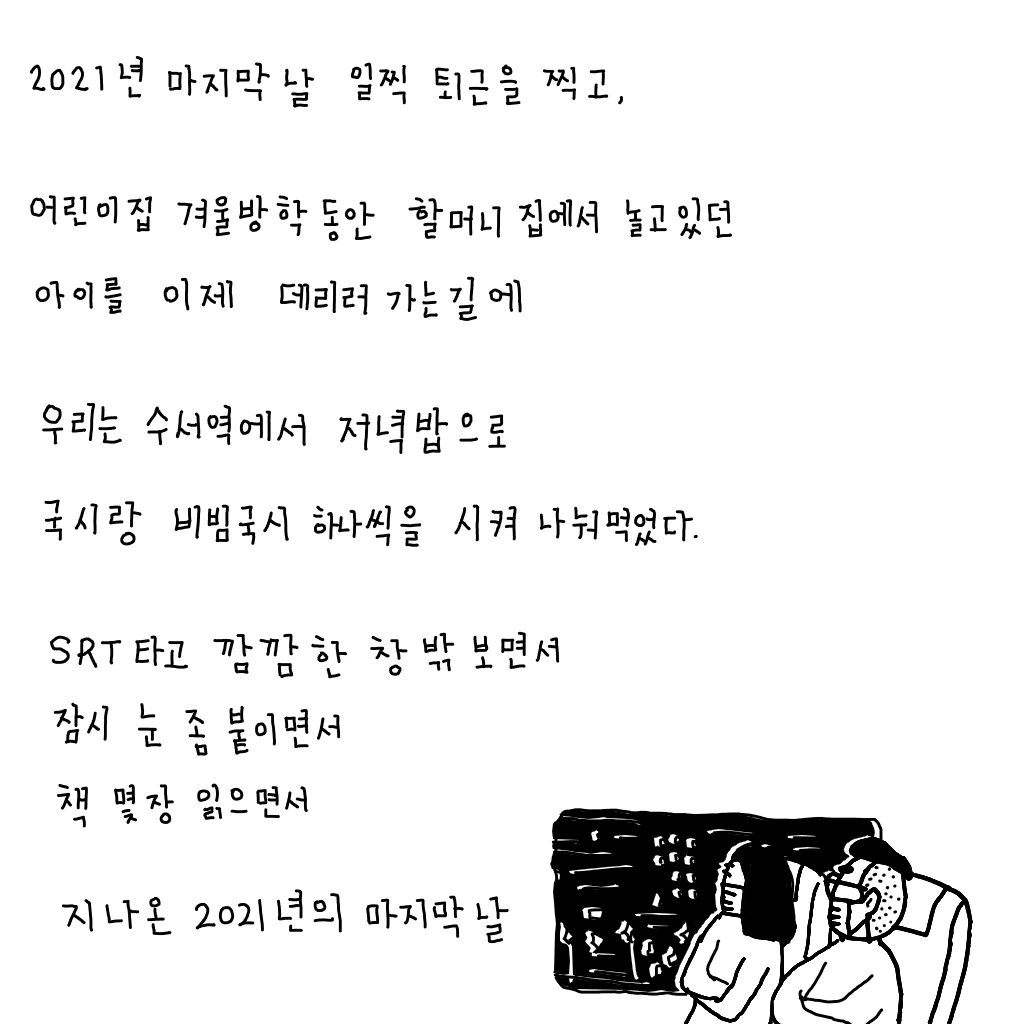 2021년 마지막 날 일찍 퇴근을 찍고,
어린이집 겨울방학 동안 할머니 집에서 놀고있던
아이를 이제 데리러 가는길에
우리는 수서역에서 저녁밥으로
국시랑 비빔국시 하나씩을 시켜 나눠먹었다.
SRT 타고 깜깜한 창 밖 보면서
잠시 눈 좀 붙이면서
책 몇장 읽으면서
지나온 2021년의 마지막 날